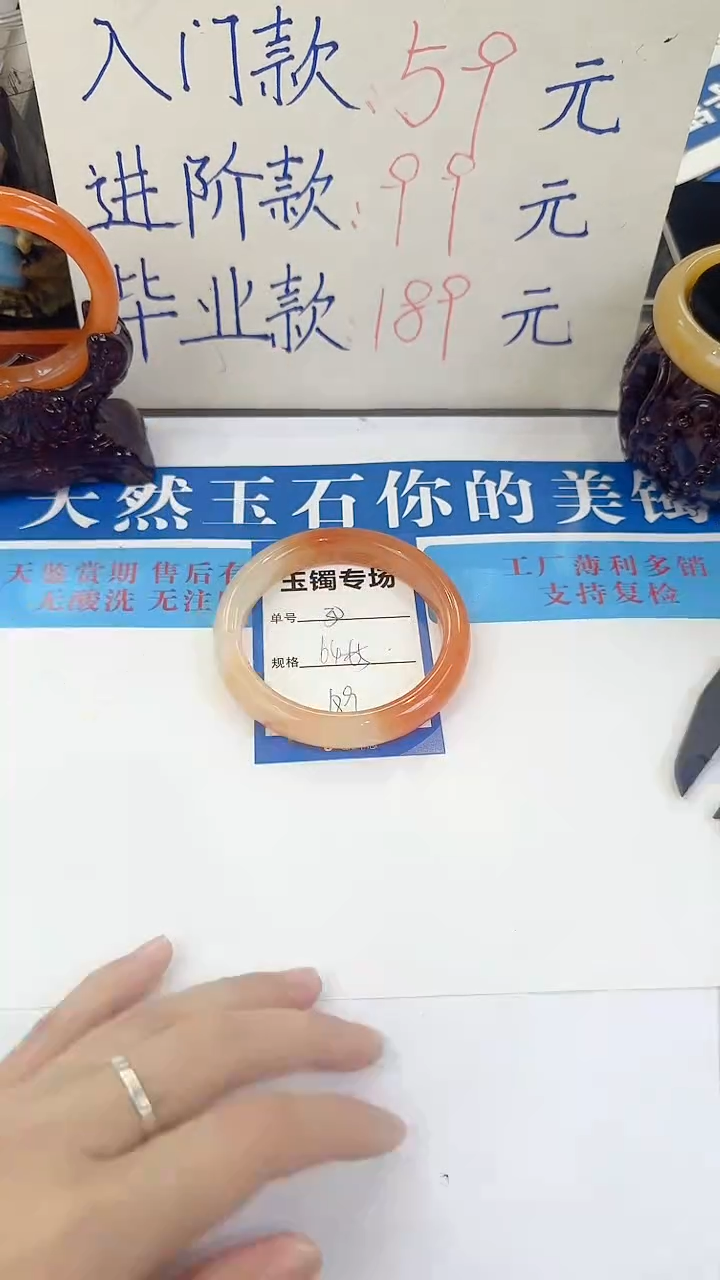 入门款:59元
进阶款:99元
毕业款:189元
天然玉石你的美镯
天鉴赏期 售后有
无酸洗 无注
工厂薄利多销
支持复检
玉镯专场
单号
规格 64
189